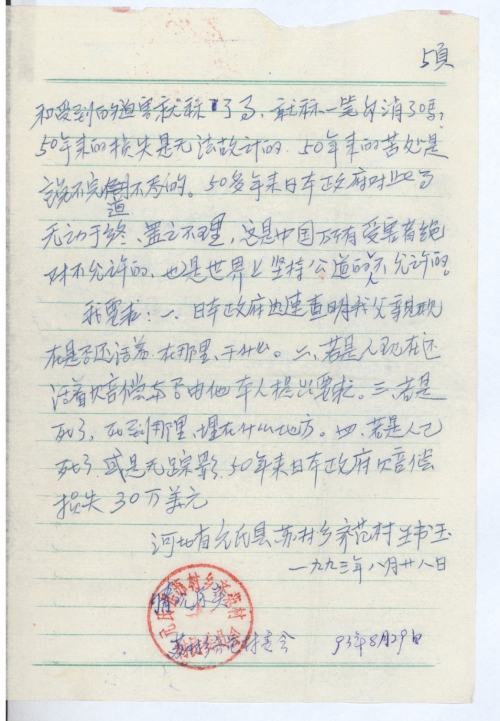 5页
和受到的迫害就称了了, 就称一笔勾消了吗?
50年来的损失是无法估计的. 50年来的苦处是
说不完道不尽的。50多年来日本政府对此
无动于终、置之不理, 这是中国所有受害者绝
对不允许的, 也是世界上坚持公道的人不允许的。
我要求: 一、日本政府迅速查明我父亲现
在是否还活着. 在那里、干什么。二、若是人现在还
活着赔偿与否由他本人提出要求。三、若是
死了, 死到那里, 埋在什么地方。四、若是人已
死了. 或是无踪影, 50年来日本政府赔偿
损失30万美元
河北省元氏县苏村乡 村 书玉
一九九三年八月廿八日
情况属实
村委会 93年8月29日